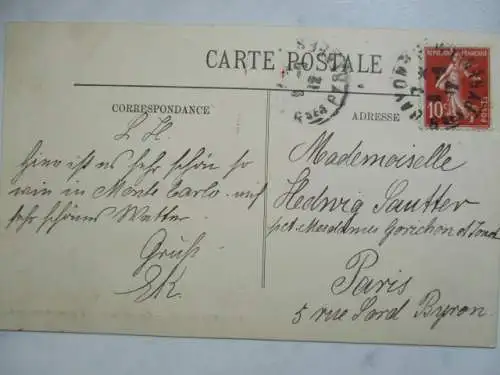 CARTE POSTALE
CORRESPONDANCE
L. H.
Hier ist es sehr schön so
wie in Monte Carlo. auch
sehr schönes Wetter
Gruß
EK.
ADRESSE
Mademoiselle
Hedwig Sautter
pr. Mesdames Gorichon et
Paris
5 rue Lord Byron.
REPUBLIQUE FRANÇAISE
10c
POSTES